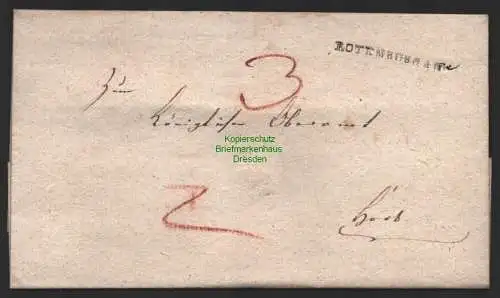 ROTTENBURG
3
Zum
Königlichen Oberamt
Kopierschutz
Briefmarkenhaus
Dresden
2
Horb